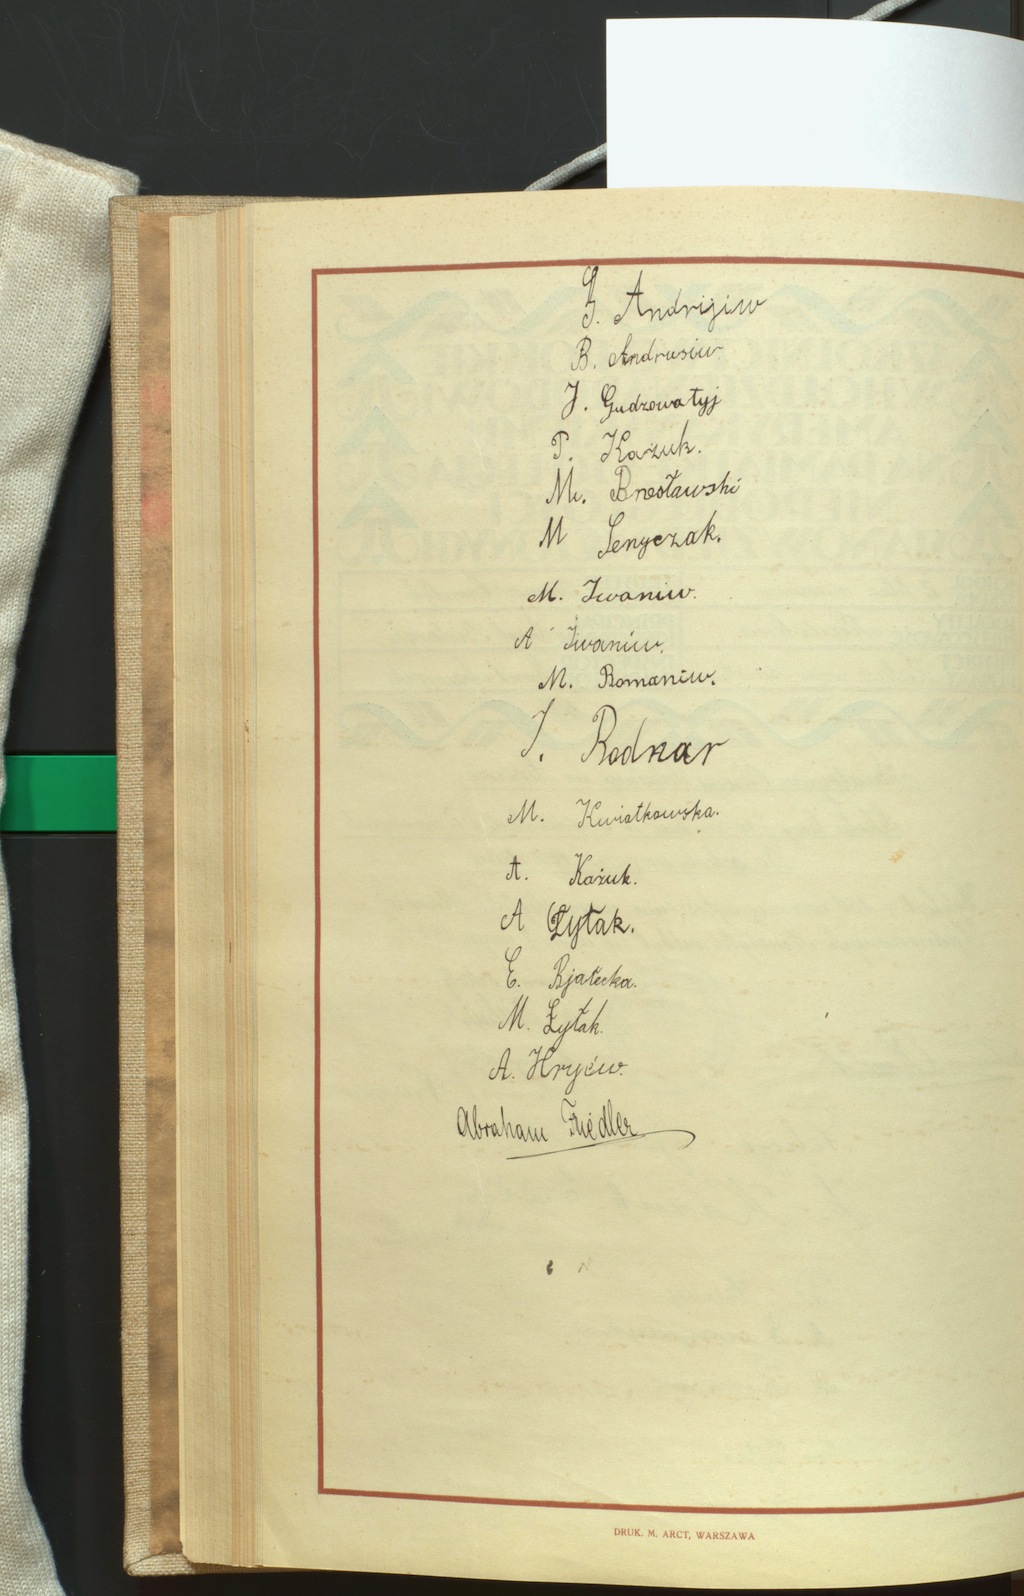 G. Andrijiw
B. Andrusiw
J. Gudzowatyj
P. Kazuk.
M. Bresławski
M Senyczak.
M. Iwaniw.
A Iwaniw.
M. Romaniw.
J. Bodnar
M. Kwiatkowska.
A. Każuk.
A Żytak.
E. Bjałecka.
M. Żytak.
A. Hryćiw.
Abraham Friedler
DRUK. M. ARCT, WARSZAWA